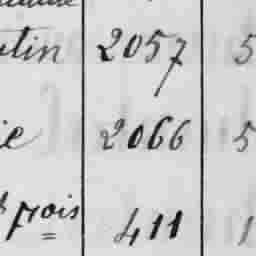 tin 2057 5
ie 2066 5
fçois 411 1